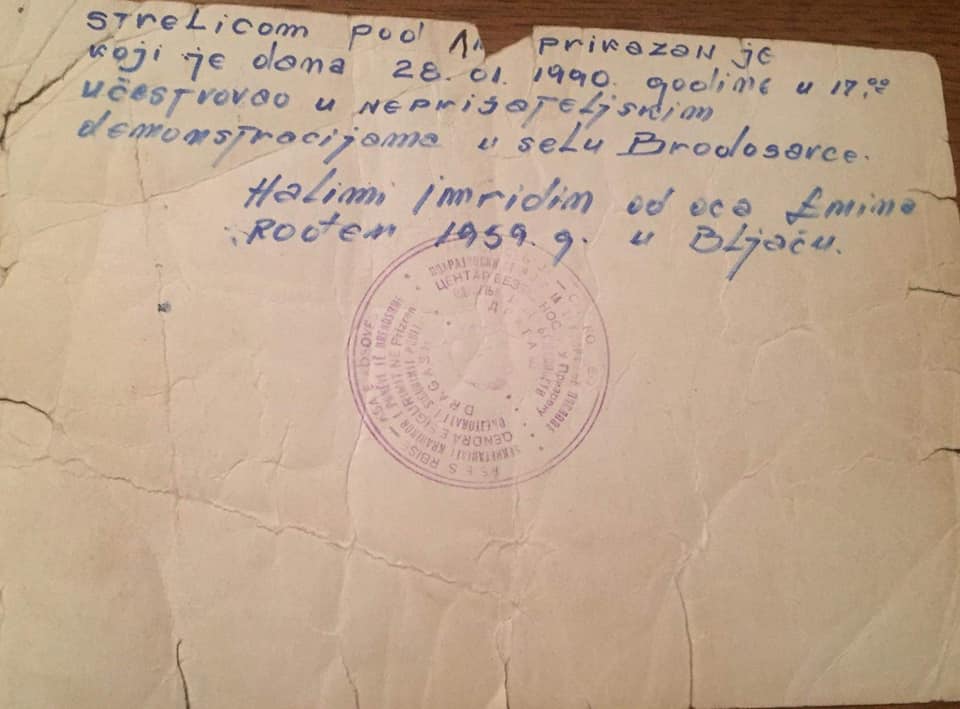 STReLicom pod 1 prikazan je
koji je dana 28.01.1990. godine u 17,00
učestvovao u neprijateljskim
demonstracijama u selu Brodosavce.
Halimi Jmridin od oca Emina
Rođen 1959. g. u Bljaču.
SEKRETARIATI KRAHINOR I
QENDRA E SIGURIMIT NE Prizren
DRAGASH
ЦЕНТАР